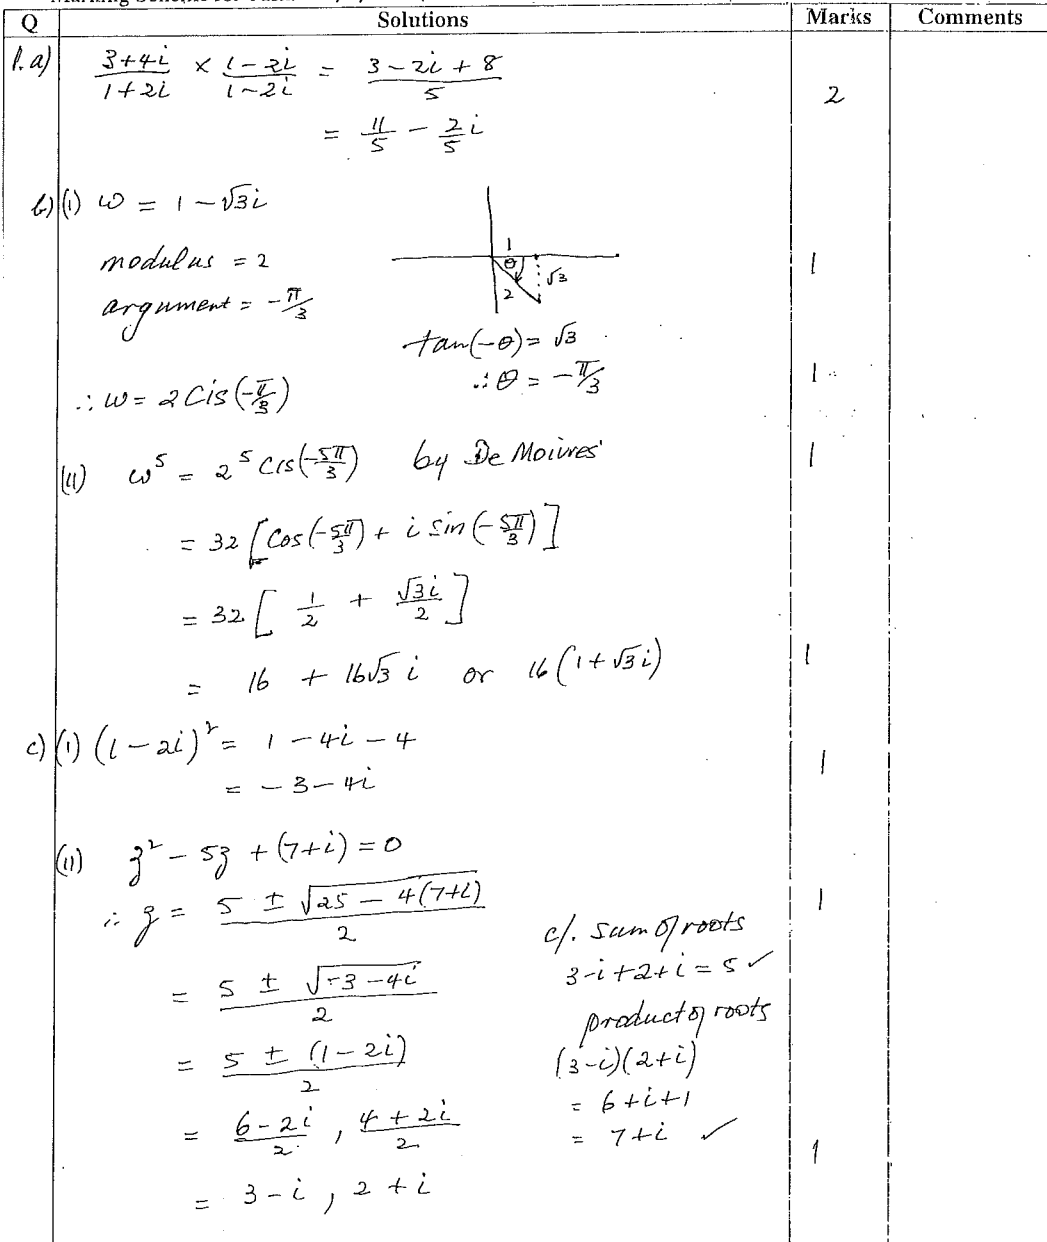 Q Solutions Marks Comments
1. a) (3+4i)/(1+2i) × (1-2i)/(1-2i) = (3-2i+8)/5
2
= 11/5 - 2/5 i
b) (i) ω = 1 - √3i
modulus = 2
1
θ
2
√3
1
argument = -π/3
tan(-θ) = √3
∴ θ = -π/3
1
∴ ω = 2 Cis(-π/3)
(ii) ω^5 = 2^5 Cis(-5π/3) by De Moivres'
1
= 32 [Cos(-5π/3) + i Sin(-5π/3)]
= 32 [1/2 + √3i/2]
= 16 + 16√3 i or 16(1+√3i)
1
c) (i) (1-2i)² = 1 - 4i - 4
1
= -3 - 4i
(ii) z² - 5z + (7+i) = 0
∴ z = (5 ± √(25 - 4(7+i)))/2
1
= (5 ± √(-3-4i))/2
= (5 ± (1-2i))/2
= (6-2i)/2 , (4+2i)/2
= 3-i , 2+i
1
c/. Sum of roots
3-i+2+i = 5 ✓
product of roots
(3-i)(2+i)
= 6+i+1
= 7+i ✓